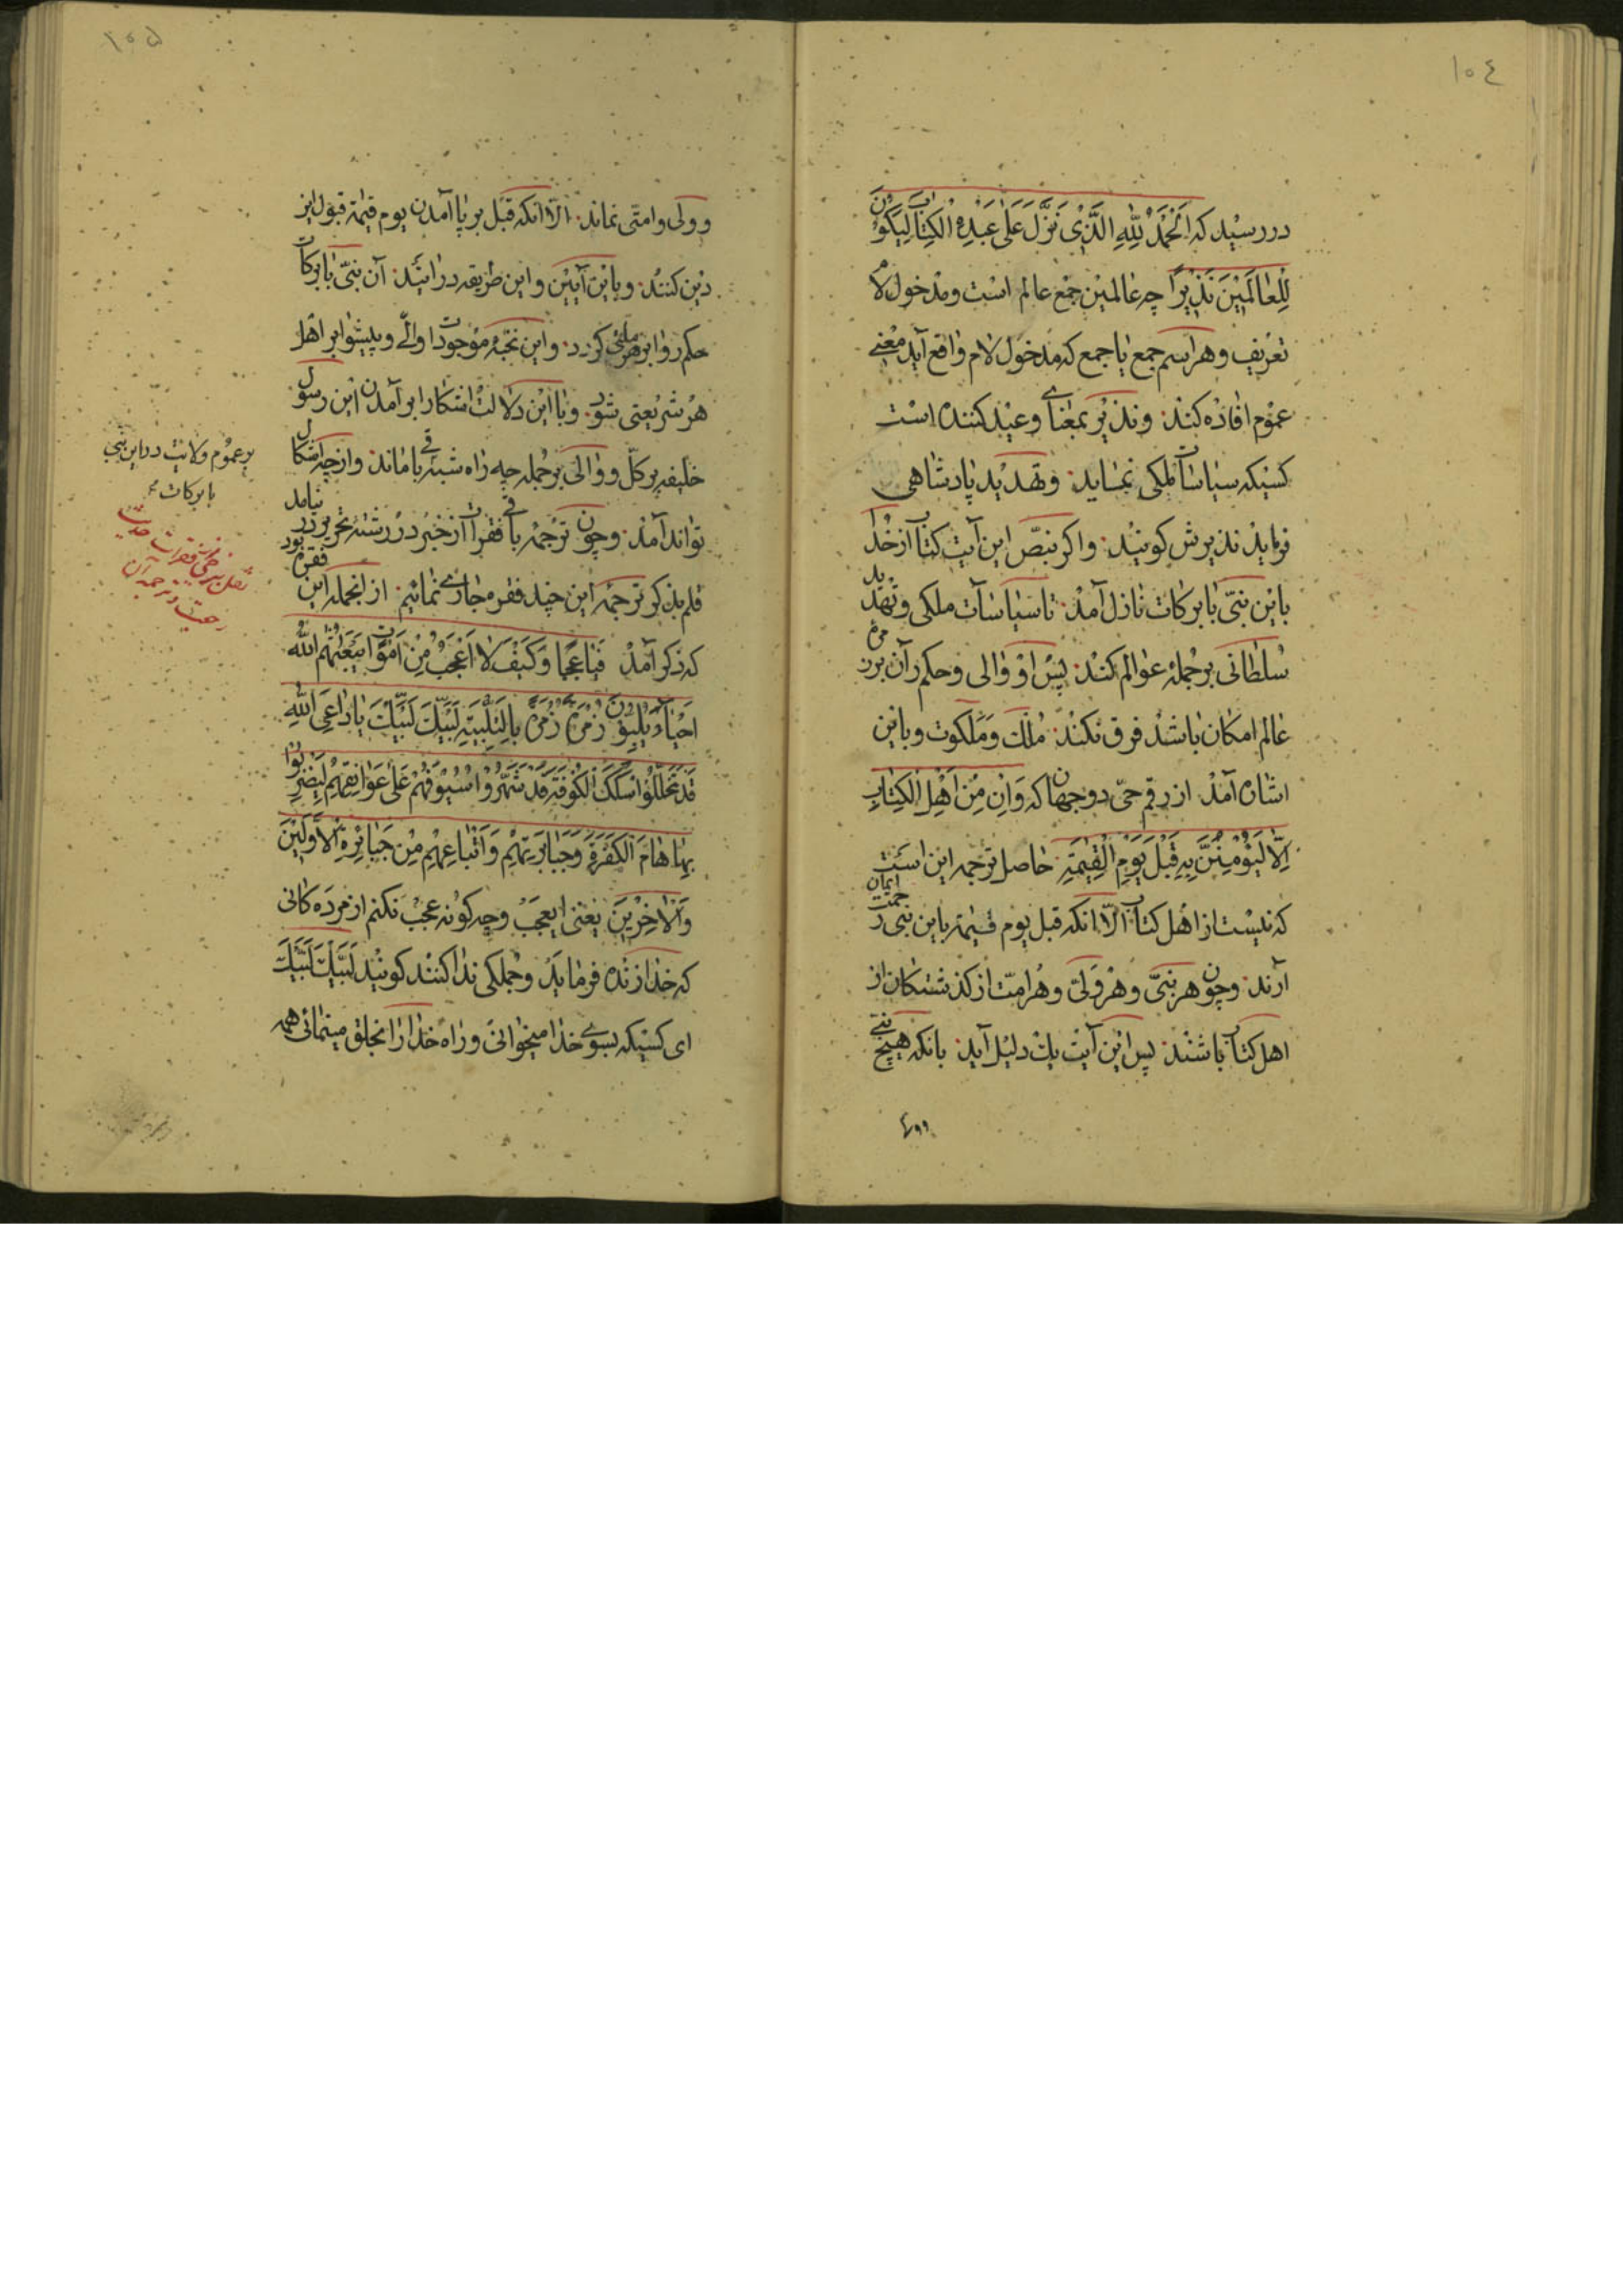 ١٠٤
در رسید که اَلْحَمْدُ لِلّٰهِ الَّذِیْ نَزَّلَ عَلٰی عَبْدِهِ الْکِتٰابَ لِیَکُوْنَ
لِلْعٰالَمِیْنَ نَذِیْرًا چه عالمین جمع عالم است و مدخول لام
تعریف و هر اسم جمع یا جمع که مدخول لام واقع آید معنی
عموم افاده کند و نذیر بمعنای وعید کننده است
کسیکه سیاسات ملکی نماید و تهدید پادشاهی
فرماید نذیرش کویند و اکر بنص این آیت کتاب از خدا
باین نبی با برکات نازل آمد تا سیاسات ملکی و تهدید
سلطانی بر جمله عوالم کند پس او والی و حکم ران بر زمره
عالم امکان باشد فرق نکند ملک و ملکوت و باین
اشان آمد از رقم حی دو جهان که وَاِنْ مِنْ اَهْلِ الْکِتٰابِ
اِلّٰا لَیُؤْمِنَنَّ بِهِ قَبْلَ یَوْمِ الْقِیٰمَةِ حاصل ترجمه این است
که نیست از اهل کتاب الّا انکه قبل یوم قیٰمة باین نبی رحمت ایمان
آرند و چون هر نبی و هر ولی و هر امت از کذشتکان از
اهل کتاب باشند پس این آیت یک دلیل آید بانکه هیچ نبی
وولی
١٠٥
و ولی و امتی نماند الّا انکه قبل بر پا آمدن یوم قیٰمة قبول این
دین کنند و باین آیین و این طریقه در آیند آن نبی با برکات
حکم روا بر هر ملتی کردد و این نخبهٔ موجودات اوالی و پیشوا بر اهل
هر شریعتی شود و با این دلالت اشکارا بر آمدن این رسول
خلیفه بر کل و والی بر جمله چه راه شبه باقی ماند و از چه اشکال
تواند آمد و چون ترجمه باقی فقرات از خبر در رشتهٔ تحریر در نیامد
قلم بذکر ترجمهٔ این چند فقره مجاری نمائیم از انجمله این فقره بود
که ذکر آمد فَیٰا عَجَبًا وَ کَیْفَ لٰا اَعْجَبُ مِنْ اَمْوٰاتٍ یَبْعَثُهُمُ اللّٰهُ
اَحْیٰاءً یُلَبُّوْنَ زُمْرَةً زُمْرَةً بِالتَّلْبِیَةِ لَبَّیْکَ لَبَّیْکَ یٰا دٰاعِیَ اللّٰهِ
قَدْ تَخَلَّلُوْا سِکَکَ الْکُوْفَةِ قَدْ شَهَرُوْا سُیُوْفَهُمْ عَلٰی عَوٰاتِقِهِمْ لِیَضْرِبُوْا
بِهٰا هٰامَ الْکَفَرَةِ وَجَبٰابِرَتِهِمْ وَ اَتْبٰاعِهِمْ مِنْ جَبٰابِرَةِ الْاَوَّلِیْنَ
وَالْاٰخِرِیْنَ یعنی ایعجب و چه کونه عجب نکنم از مرده کانی
که خدا زنده فرماید و جملکی ندا کنند کویند لَبَّیْکَ لَبَّیْکَ
ای کسیکه بسوی خدا میخوانی و راه خدا را بخلق مینمائی همه
بر عموم ولایت در این نبی
با برکات